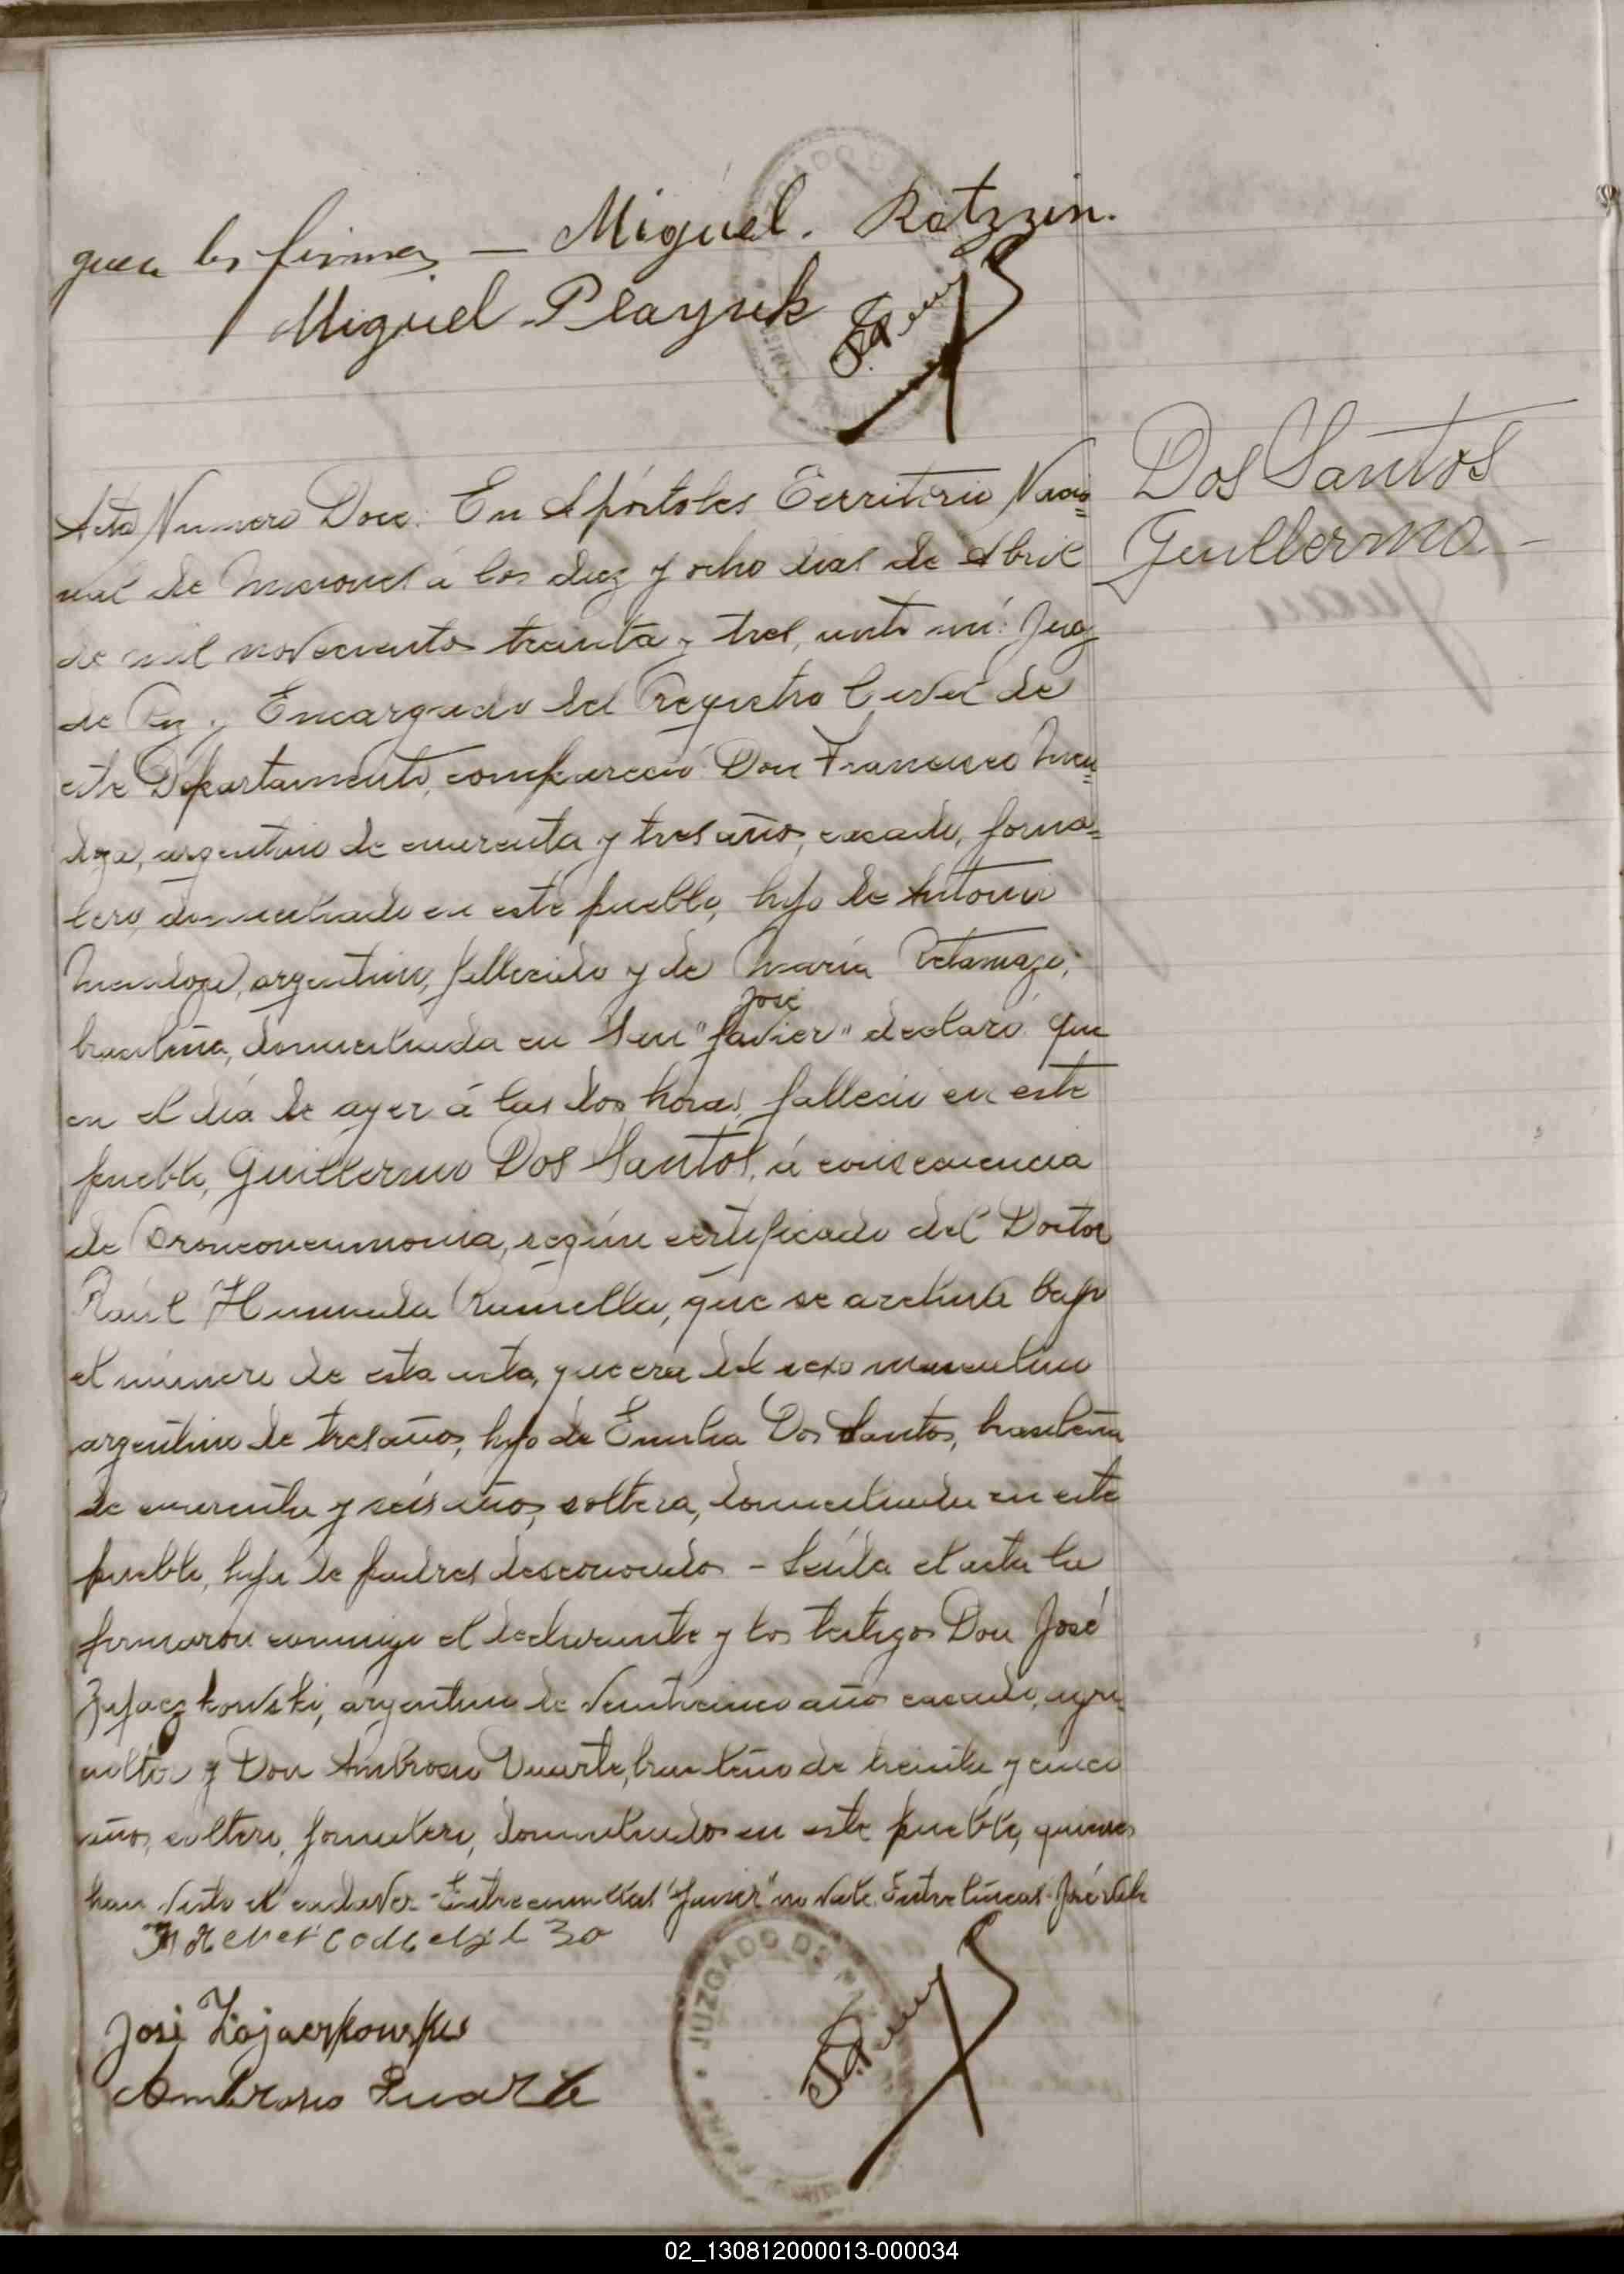 guen las firmas — Miguel. Ratzzin.
Miguel Playuk
Dos Santos
Guillermo. -
Acta Numero Doce: En Apóstoles Territorio Nacio=
nal de Misiones á los diez y ocho dias de Abril
de mil novecientos treinta y tres, ante mi: Juez
de Paz y Encargado del Registro Civil de
este Departamento, compareció: Don Francisco Men=
doza, argentino de cuarenta y tres años, casado, jorna=
lero, domiciliado en este pueblo, hijo de Antonio
Mendoza, argentino, fallecido y de María Retamozo,
José
brasileña, domiciliada en San "Javier" declaró: que
en el día de ayer á las dos horas, falleció en este
pueblo, Guillermo Dos Santos, á consecuencia
de Bronconeumonia, según certificado del Doctor
Raúl Ramella, que se archiva bajo
el número de esta acta, que era del sexo masculino
argentino de tres años, hijo de Emilia Dos Santos, brasileña
de cuarenta y seis años, soltera, domiciliada en este
pueblo, hija de padres desconocidos - Leída el acta la
firmaron conmigo el declarante y los testigos Don José
Zajaczkowski, argentino de veinticinco años casado, agri
cultor y Don Ambrosio Duarte, brasileño de treinta y cinco
años, soltero, jornalero, domiciliados en este pueblo, quienes
han visto el cadaver - Entre comillas "Javier" no vale. Entre líneas - José vale
José Zajaczkowski
Ambrosio Duarte
JUZGADO DE
02_130812000013-000034